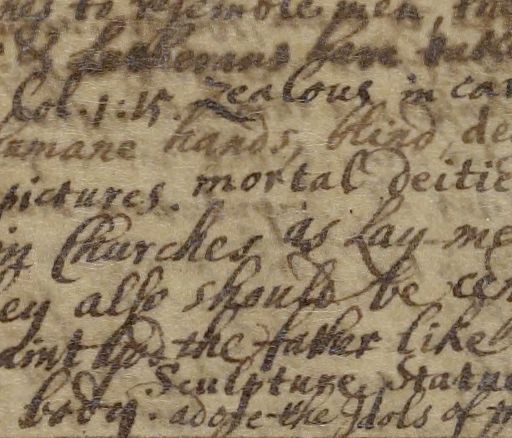 to resemble men, 
& Lutherans have
Col. 1: 15. Zealous in
humane hands, blind,
pictures. mortal deitie
in Churches as Lay me
hey also should be cen
aint God the father like
Sculpture. Statue
body. adore the Idols of